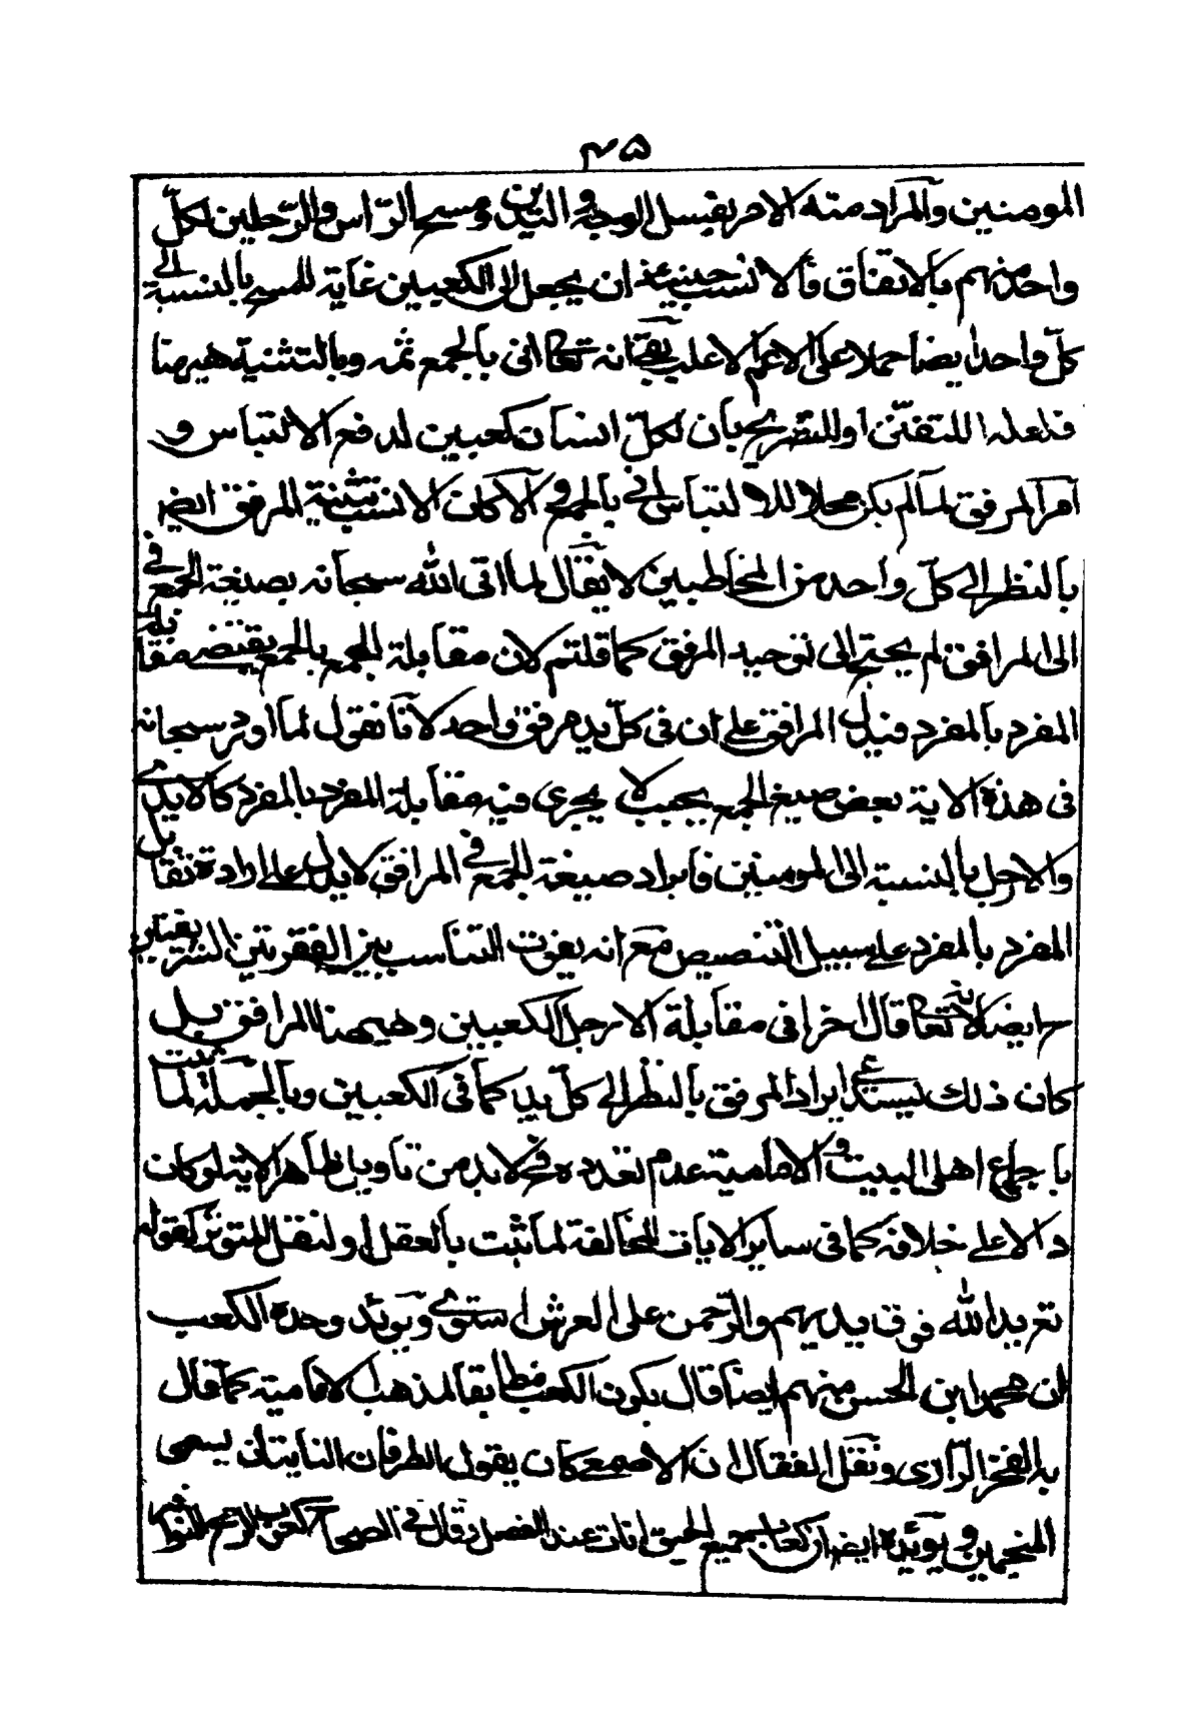 ٣٥
المومنين والمراد منه الامر بغسل الوجه واليدين ومسح الراس والرّجلين لكلّ
واحد منهم بالاتفاق فالانسب حينئذ ان يجعل الى الكعبين غاية للمسح بالنسبة الى
كلّ واحد ايضا حملا على الاعم الاغلب بقى انه تعالى اتى بالجمع ثمه وبالتثنية هيهنا
فلعله للتفنّن او للتصريح بان لكلّ انسان كعبين لدفع الالتباس و
امر المرفق لما لم يكن محلا للالتباس اتى بالجمع والا كان الانسب تثنية المرفق ايضا
بالنظر الى كلّ واحد من المخاطبين لا يقال لما اتى الله سبحانه بصيغة الجمع فى
الى المرافق لم يحتج الى توحيد المرفق كما قلتم لان مقابلة الجمع بالجمع يقتضى مقابلة
المفرد بالمفرد فيدل المرافق على ان فى كلّ يد مرفق واحد لانا نقول لما اورد سبحانه
فى هذه الاية بعض صيغ الجمع بحيث لا يجرى فيه مقابلة المفرد بالمفرد كالايدى
والارجل بالنسبة الى المومنين فايراد صيغة الجمع فى المرافق لا يدل على ارادة تقابل
المفرد بالمفرد على سبيل التنصيص مع انه يفوت التناسب بين الفقرتين الشريفتين
ح ايضا لانه تعالى قال اخرا فى مقابلة الارجل الكعبين وهيهنا المرافق بل
كان ذلك يستدعى ايراد المرفق بالنظر الى كلّ يد كما فى الكعبين وبالجملة لما ثبت
باجماع اهل البيت والامامية عدم تعدده فلا بد من تاويل ظاهر الاية لو كان
دالا على خلافه كما فى ساير الايات المخالفة لما ثبت بالعقل او لنقل المتواتر كقوله
تعر يد الله فوق ايديهم والرّحمن على العرش استوى ويؤيد وحدة الكعب
ان محمد ابن الحسن منهم ايضا قال بكون الكعب مطابقا لمذهب الامامية كما قال
به الفخر الرّازى ونقل القفال ان الاصمعى كان يقول الطرفان الناتيان يسمى
المنجمين ويؤيده ايضا ان كعاب جميع الحيوانات عند المفصل وقال فى الصحاح